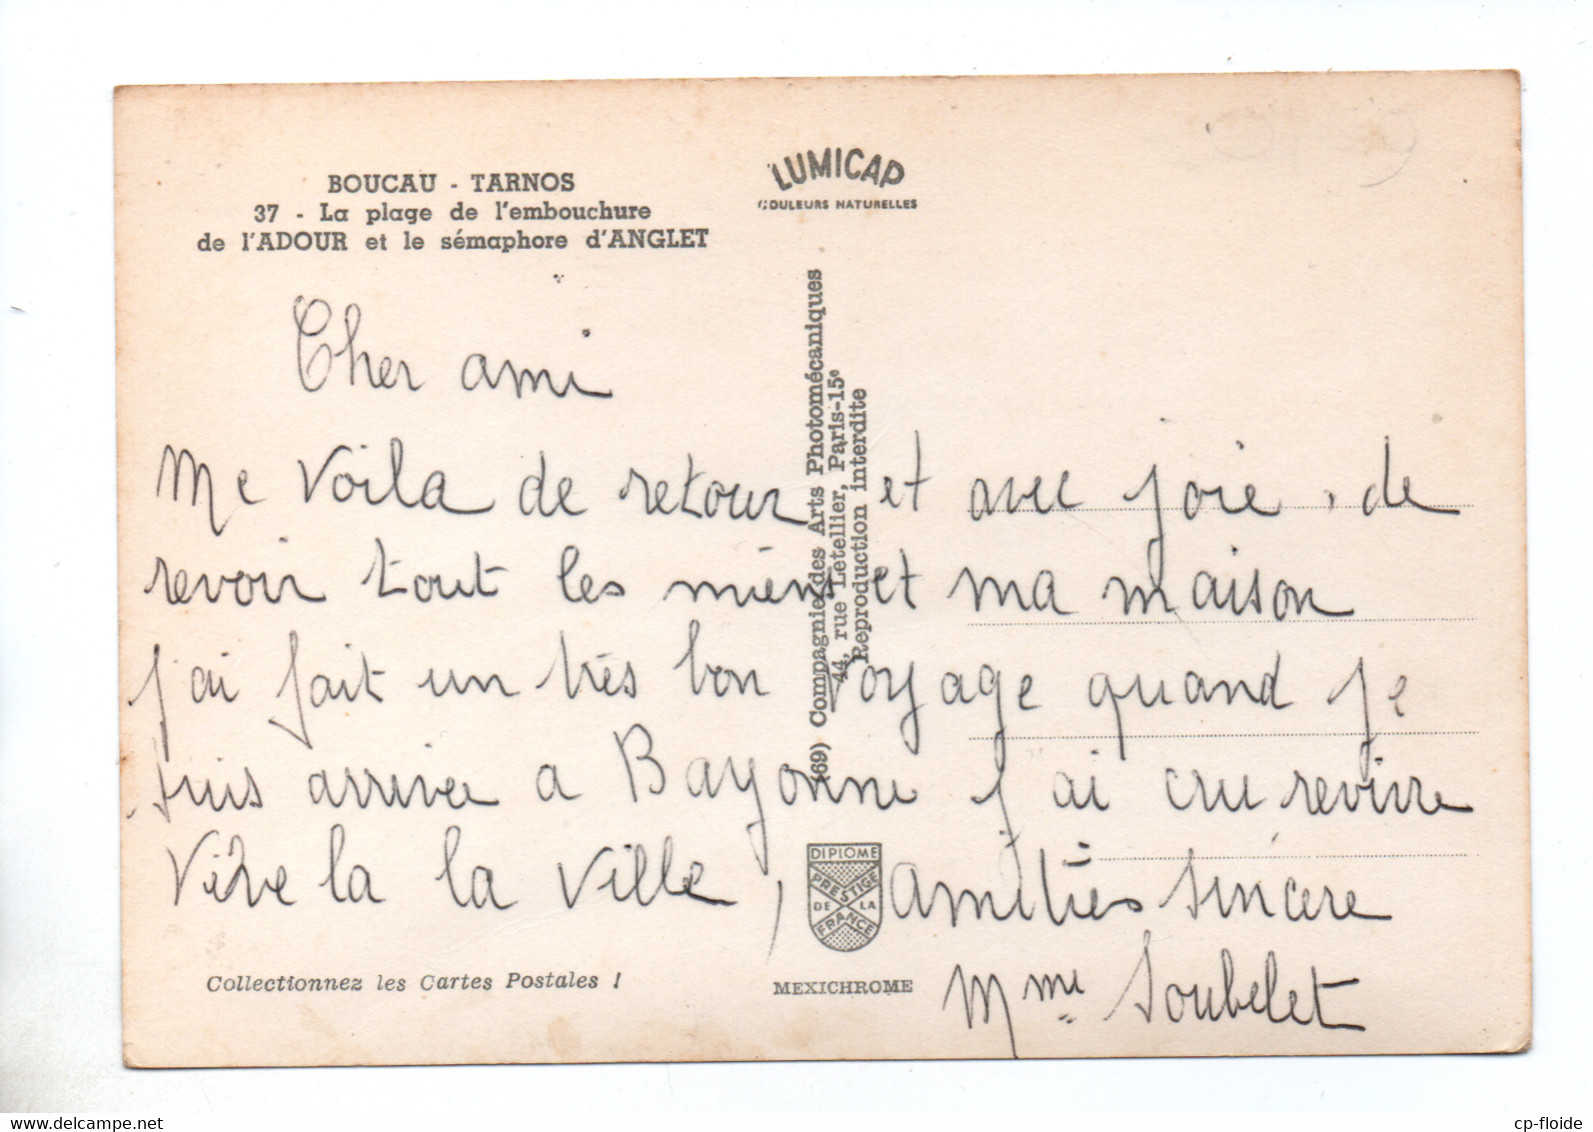 BOUCAU - TARNOS
37 - La plage de l'embouchure
de l'ADOUR et le sémaphore d'ANGLET
LUMICAP
COULEURS NATURELLES
Cher ami
Me voila de retour et avec joie, de
revoir tout les miens et ma maison
j'ai fait un très bon voyage quand je
suis arrivee a Bayonne j'ai cru revivre
Vive la la ville, Amitiés sincere
Mme Soubelet
(69) Compagnie des Arts Photomécaniques
44, rue Letellier, Paris-15e
Reproduction interdite
DIPLOME
PRESTIGE
DE LA
FRANCE
Collectionnez les Cartes Postales !
MEXICHROME
cp-floide